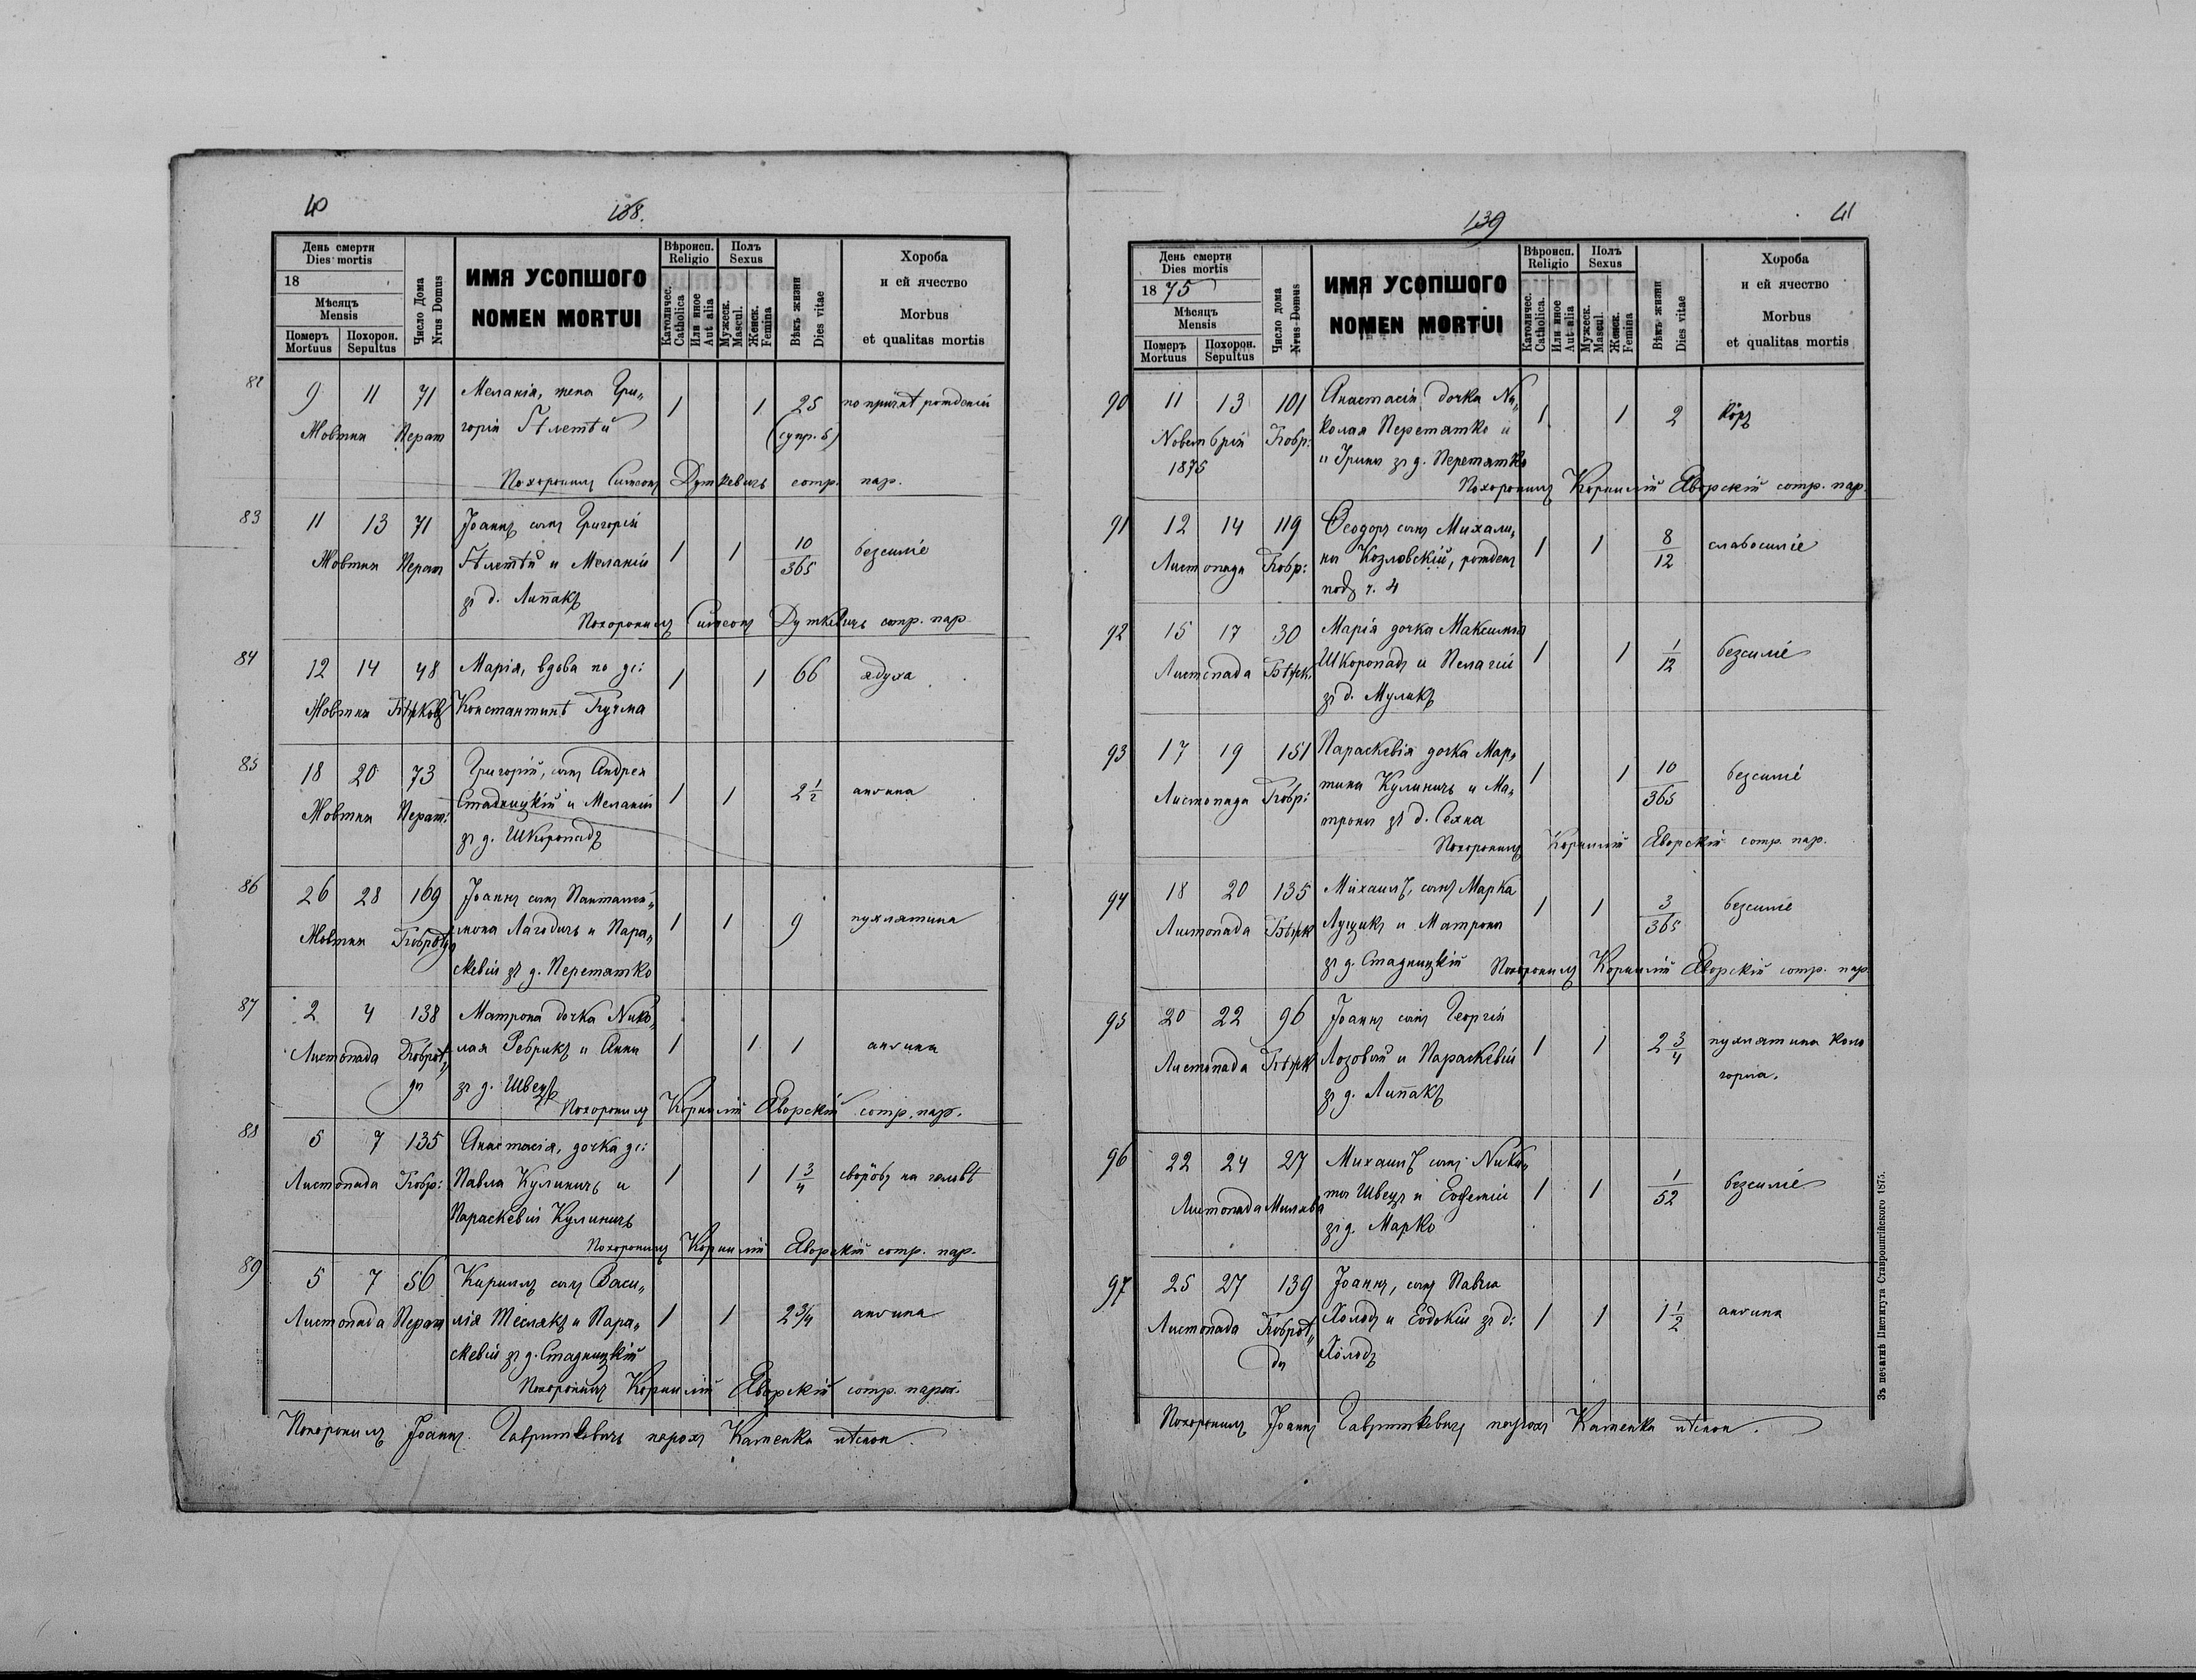 40
138.
День смерти
Dies mortis
18
Мѣсяцъ
Mensis
Померъ
Mortuus
Похорон.
Sepultus
Число Дома
Nrus Domus
ИМЯ УСОПШОГО
NOMEN MORTUI
Вѣроисп.
Religio
Католичес.
Catholica
Или иное
Aut alia
Полъ
Sexus
Мужеск.
Mascul.
Женск.
Femina
Вѣкъ жизни
Dies vitae
Хороба
и ей ячество
Morbus
et qualitas mortis
82
9 11 71 Меланія, жена Гри„ 1 1 25 по причнѣ рожденія
Жовтня Перат горія (супр. 5)
Похоронилъ Симеонъ Дуткевичъ сотр. пар.
83
11 13 71 Іоаннъ сынъ Григорія
Жовтня Перат и Меланіи 1 1 10/365 безсиліе
зъ д. Липакъ
Похоронилъ Симеонъ Дуткевичъ сотр. пар
84
12 14 48 Марія, вдова по 1 1 66 ядуха
Жовтня Константинѣ Кучма
85
18 20 73 Григорій, сынъ Андрея
Жовтня Перат: Стадницкій и Меланіи 1 1 2 1/2 ангина
зъ д. Шкоропадъ
86
26 28 169 Іоаннъ сынъ Панталей„
Жовтня мона Лагодичъ и Пара„ 1 1 9 пухлятина
скевіи зъ д. Перетятко
87
2 4 138 Матрона дочка Нико„
Листопада лая Ребрикъ и Анны 1 1 1 ангина
зъ д. Швецъ
Похоронилъ Корнилій Яворскій сотр. пар.
88
5 7 135 Анастасія, дочка
Листопада Добр: Павла Кулиничъ и 1 1 1 3/4 на головѣ
Параскевіи Кулиничъ
Похоронилъ Корнилій Яворскій сотр. пар.
89
5 7 56 Кириллъ сынъ Васи„
Листопада Перат лія Теслякъ и Пара„ 1 1 2 3/4 ангина
скевіи зъ д. Стадницкій
Похоронилъ Корнилій Яворскій сотр. парох.
Похоронилъ Іоаннъ Гавришкевичъ парохъ Каменка
139
41
День смерти
Dies mortis
18 75
Мѣсяцъ
Mensis
Померъ
Mortuus
Похорон.
Sepultus
Число дома
Nrus Domus
ИМЯ УСОПШОГО
NOMEN MORTUI
Вѣроисп.
Religio
Католичес.
Catholica.
Или иное
Aut alia
Полъ
Sexus
Мужеск.
Mascul.
Женск.
Femina
Вѣкъ жизни
Dies vitae
Хороба
и ей ячество
Morbus
et qualitas mortis
90
11 13 101 Анастасія дочка Ни„
Новембрія Добр: колая Перетятко и 1 1 2 кôръ
1875 и Ірины зъ д. Перетятко
Похоронилъ Корнилій Яворскій сотр. пар.
91
12 14 119 Ѳеодоръ сынъ Михали„
Листопада Добр: ны Козловскій, рожденъ 1 1 8/12 слабосиліе
подъ ч. 4
92
15 17 30 Марія дочка Максима
Листопада Шкоропадъ и Пелагіи 1 1 1/12 безсиліе
зъ д. Муликъ
93
17 19 151 Параскевія дочка Мар„
Листопада Добр: тина Кулиничъ и Ма„ 1 1 10/365 безсиліе
троны зъ д. Сахна
Похоронилъ Корнилій Яворскій сотр. пар.
94
18 20 135 Михаилъ, сынъ Марка
Листопада Лущикъ и Матроны 1 1 3/365 безсиліе
зъ д. Стадницкій
Похоронилъ Корнилій Яворскій сотр. пар
95
20 22 96 Іоаннъ сынъ Георгія
Листопада Лозовый и Параскевіи 1 1 2 3/4 пухлятина коло
зъ д. Липакъ горла.
96
22 24 27 Михаилъ сынъ Ники„
Листопада ты Швецъ и Евфеміи 1 1 1/52 безсиліе
зъ д. Марко
97
25 27 139 Іоаннъ, сынъ Павла
Листопада Холодъ и Евдокіи зъ д: 1 1 1 1/2 ангина
Холодъ
Похоронилъ Іоаннъ Гавришкевичъ парохъ Каменка
Зъ печатнѣ Института Ставропигійского 1875.